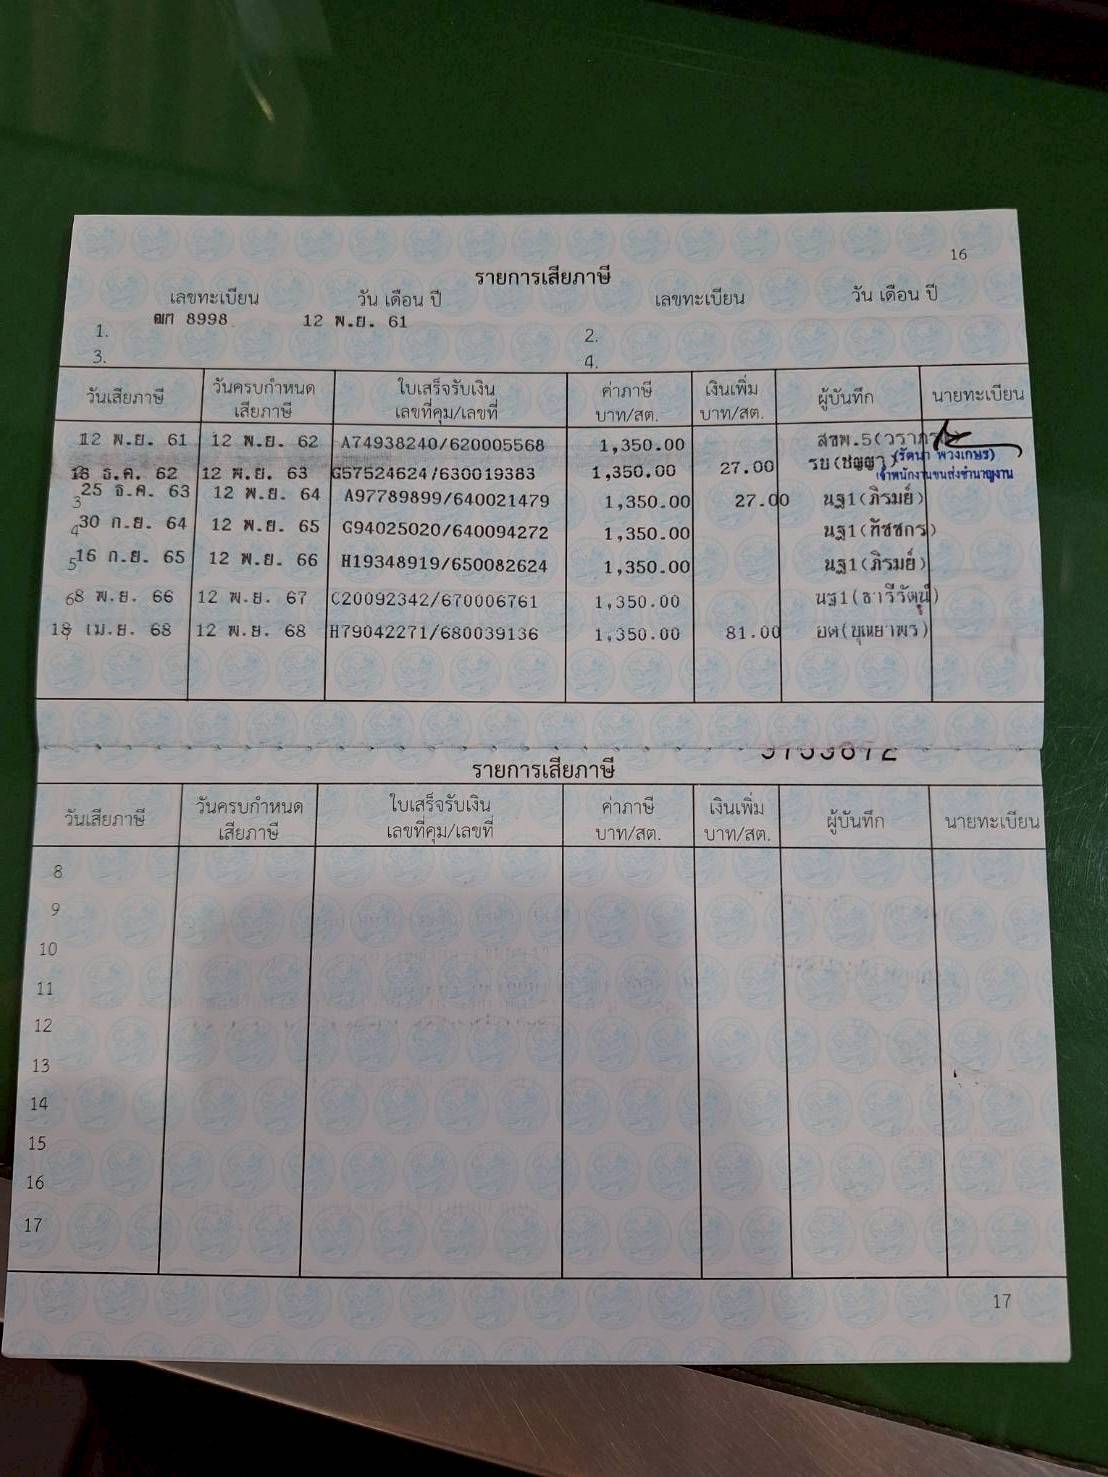 16
รายการเสียภาษี
เลขทะเบียน วัน เดือน ปี เลขทะเบียน วัน เดือน ปี
1. ฌก 8998 12 พ.ย. 61 2.
3. 4.
วันเสียภาษี วันครบกำหนด เสียภาษี ใบเสร็จรับเงิน เลขที่คุม/เลขที่ ค่าภาษี บาท/สต. เงินเพิ่ม บาท/สต. ผู้บันทึก นายทะเบียน
12 พ.ย. 61 12 พ.ย. 62 A74938240/620005568 1,350.00 สขพ.5(วราภรณ์)
ธ.ค. 62 12 พ.ย. 63 G57524624/630019383 1,350.00 27.00 รบ(ชญญา) (รัตนา พวงเกษร)
เจ้าพนักงานขนส่งชำนาญงาน
3 25 ธ.ค. 63 12 พ.ย. 64 A97789899/640021479 1,350.00 27.00 นฐ1(ภิรมย์)
4 30 ก.ย. 64 12 พ.ย. 65 G94025020/640094272 1,350.00 นฐ1(ทัชชกร)
5 16 ก.ย. 65 12 พ.ย. 66 H19348919/650082624 1,350.00 นฐ1(ภิรมย์)
6 8 พ.ย. 66 12 พ.ย. 67 C20092342/670006761 1,350.00 นฐ1(ธารีวัตน์)
เม.ย. 68 12 พ.ย. 68 H79042271/680039136 1,350.00 81.00 อต(บุณยาพร)
รายการเสียภาษี
วันเสียภาษี วันครบกำหนด เสียภาษี ใบเสร็จรับเงิน เลขที่คุม/เลขที่ ค่าภาษี บาท/สต. เงินเพิ่ม บาท/สต. ผู้บันทึก นายทะเบียน
8
9
10
11
12
13
14
15
16
17
17